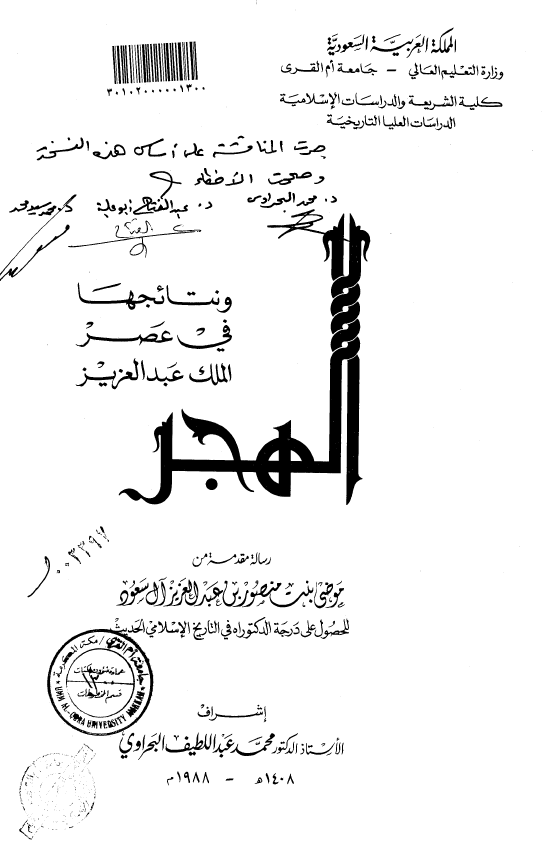 المملكة العربية السعودية
وزارة التعليم العالي - جامعة أم القرى
كلية الشريعة والدراسات الإسلامية
الدراسات العليا التاريخية
٣٠١٠٢٠٠٠٠٠١٣٠٠
جرت المناقشة على أساس هذه النسخة
وصححت الأخطاء
د. محمد البحراوي د. عبدالفتاح أبو علية د. محمد سعيد
الهجر
ونتائجها
في عصر
الملك عبدالعزيز
٠٠٣٣٩٢
رسالة مقدمة من
موضي بنت منصور بن عبدالعزيز آل سعود
للحصول على درجة الدكتوراه في التاريخ الإسلامي الحديث
جامعة أم القرى / مكة المكرمة
عمادة شئون المكتبات
قسم المخطوطات
UMM AL-QURA UNIVERSITY MAKKAH
إشراف
الأستاذ الدكتور محمد عبد اللطيف البحراوي
١٤٠٨هـ - ١٩٨٨م